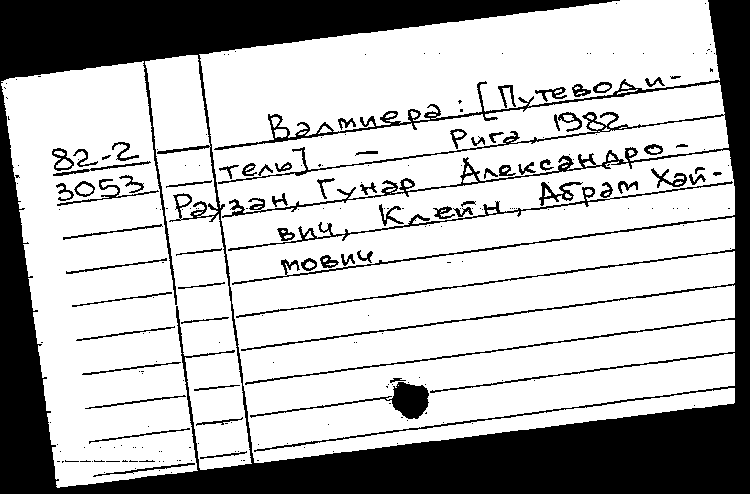 Валмиера : [Путеводи-
82-2
тель]. — Рига, 1982
3053
Раузан, Гунар Александро-
вич, Клейн, Абрам Хай-
мович.